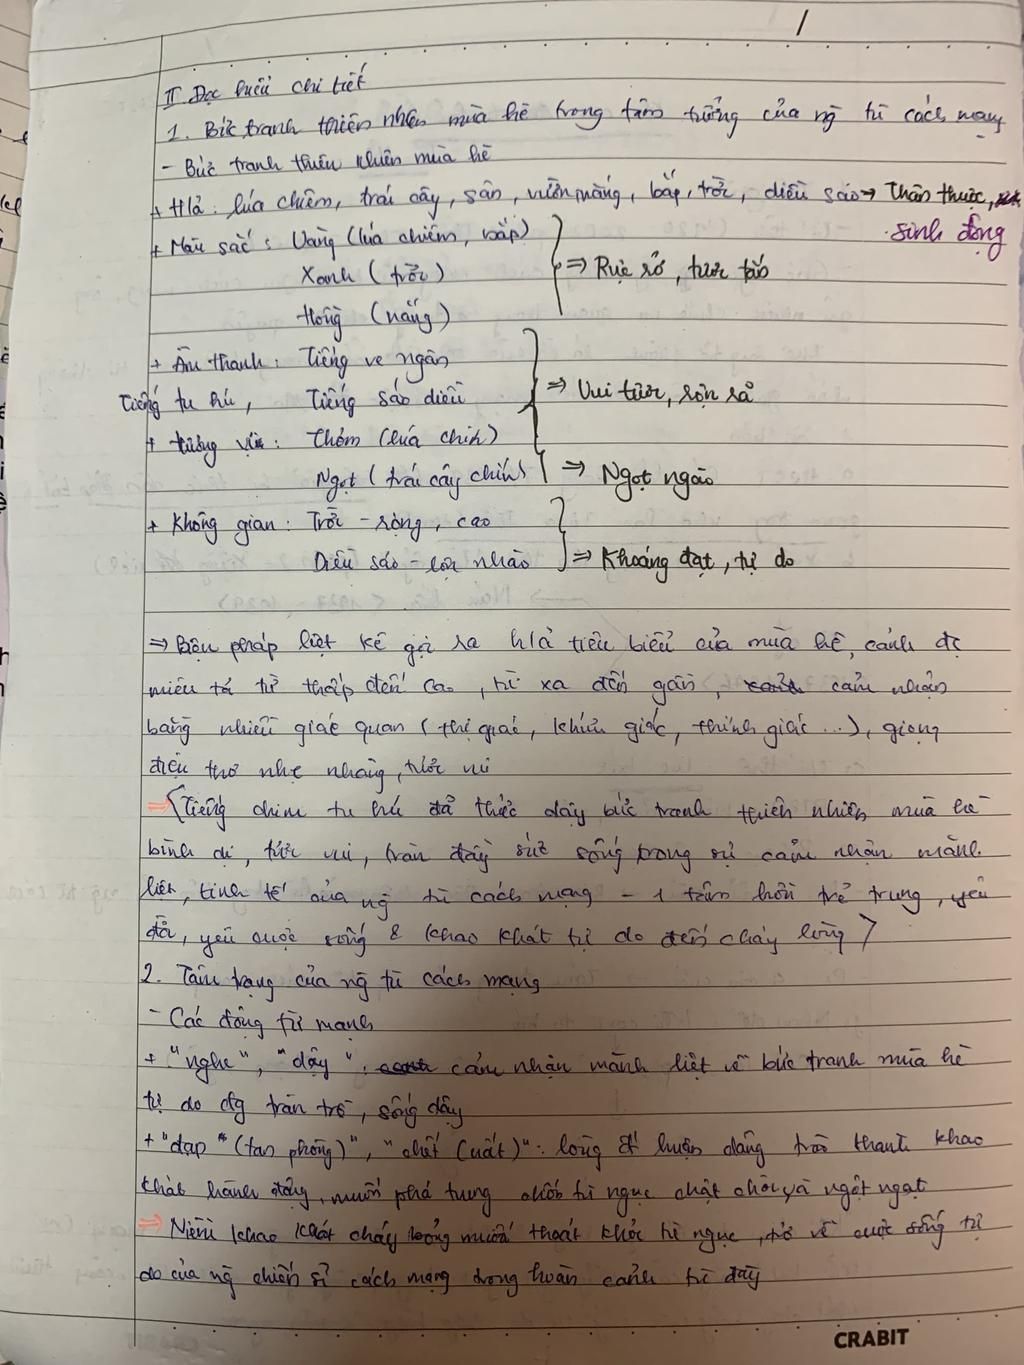 II Đọc hiểu chi tiết
1. Bức tranh thiên nhiên mùa hè trong tâm tưởng của ng tù cách mạng
- Bức tranh thiên nhiên mùa hè
+ H/ả: lúa chiêm, trái cây, sân, vườn, nắng, bắp, trời, diều sáo → Thân thuộc,
sinh động
+ Màu sắc: Vàng (lúa chiêm, bắp)
Xanh (trời)
Hồng (nắng)
⇒ Rực rỡ, tươi tắn
+ Âm thanh: Tiếng ve ngân
Tiếng tu hú, Tiếng sáo diều
⇒ Vui tươi, rộn rã
+ Hương vị: Thơm (lúa chín)
Ngọt (trái cây chín) ⇒ Ngọt ngào
+ Không gian: Trời - rộng, cao
Diều sáo - lộn nhào ⇒ Khoáng đạt, tự do
⇒ Biện pháp liệt kê gợi ra h/ả tiêu biểu của mùa hè, cảnh đc
miêu tả từ thấp đến cao, từ xa đến gần, cảm nhận
bằng nhiều giác quan (thị giác, khứu giác, thính giác ...), giọng
điệu thơ nhẹ nhàng, tươi vui
⇒ (Tiếng chim tu hú đã thức dậy bức tranh thiên nhiên mùa hè
bình dị, tươi vui, tràn đầy sức sống trong sự cảm nhận mãnh
liệt, tinh tế của ng tù cách mạng - 1 tâm hồn trẻ trung, yêu
đời, yêu cuộc sống & khao khát tự do đến cháy lòng)
2. Tâm trạng của ng tù cách mạng
- Các động từ mạnh
+ "nghe", "dậy": cảm nhận mãnh liệt về bức tranh mùa hè
tự do đg tràn trề, sống dậy
+ "đạp" (tan phòng)", "chết (uất)": lòng luận dâng trào thành khao
khát hành động, muốn phá tung chốn tù ngục chật chội và ngột ngạt
⇒ Niềm khao khát cháy bỏng muốn thoát khỏi tù ngục, trở về cuộc sống tự
do của ng chiến sĩ cách mạng trong hoàn cảnh tù đầy
CRABIT